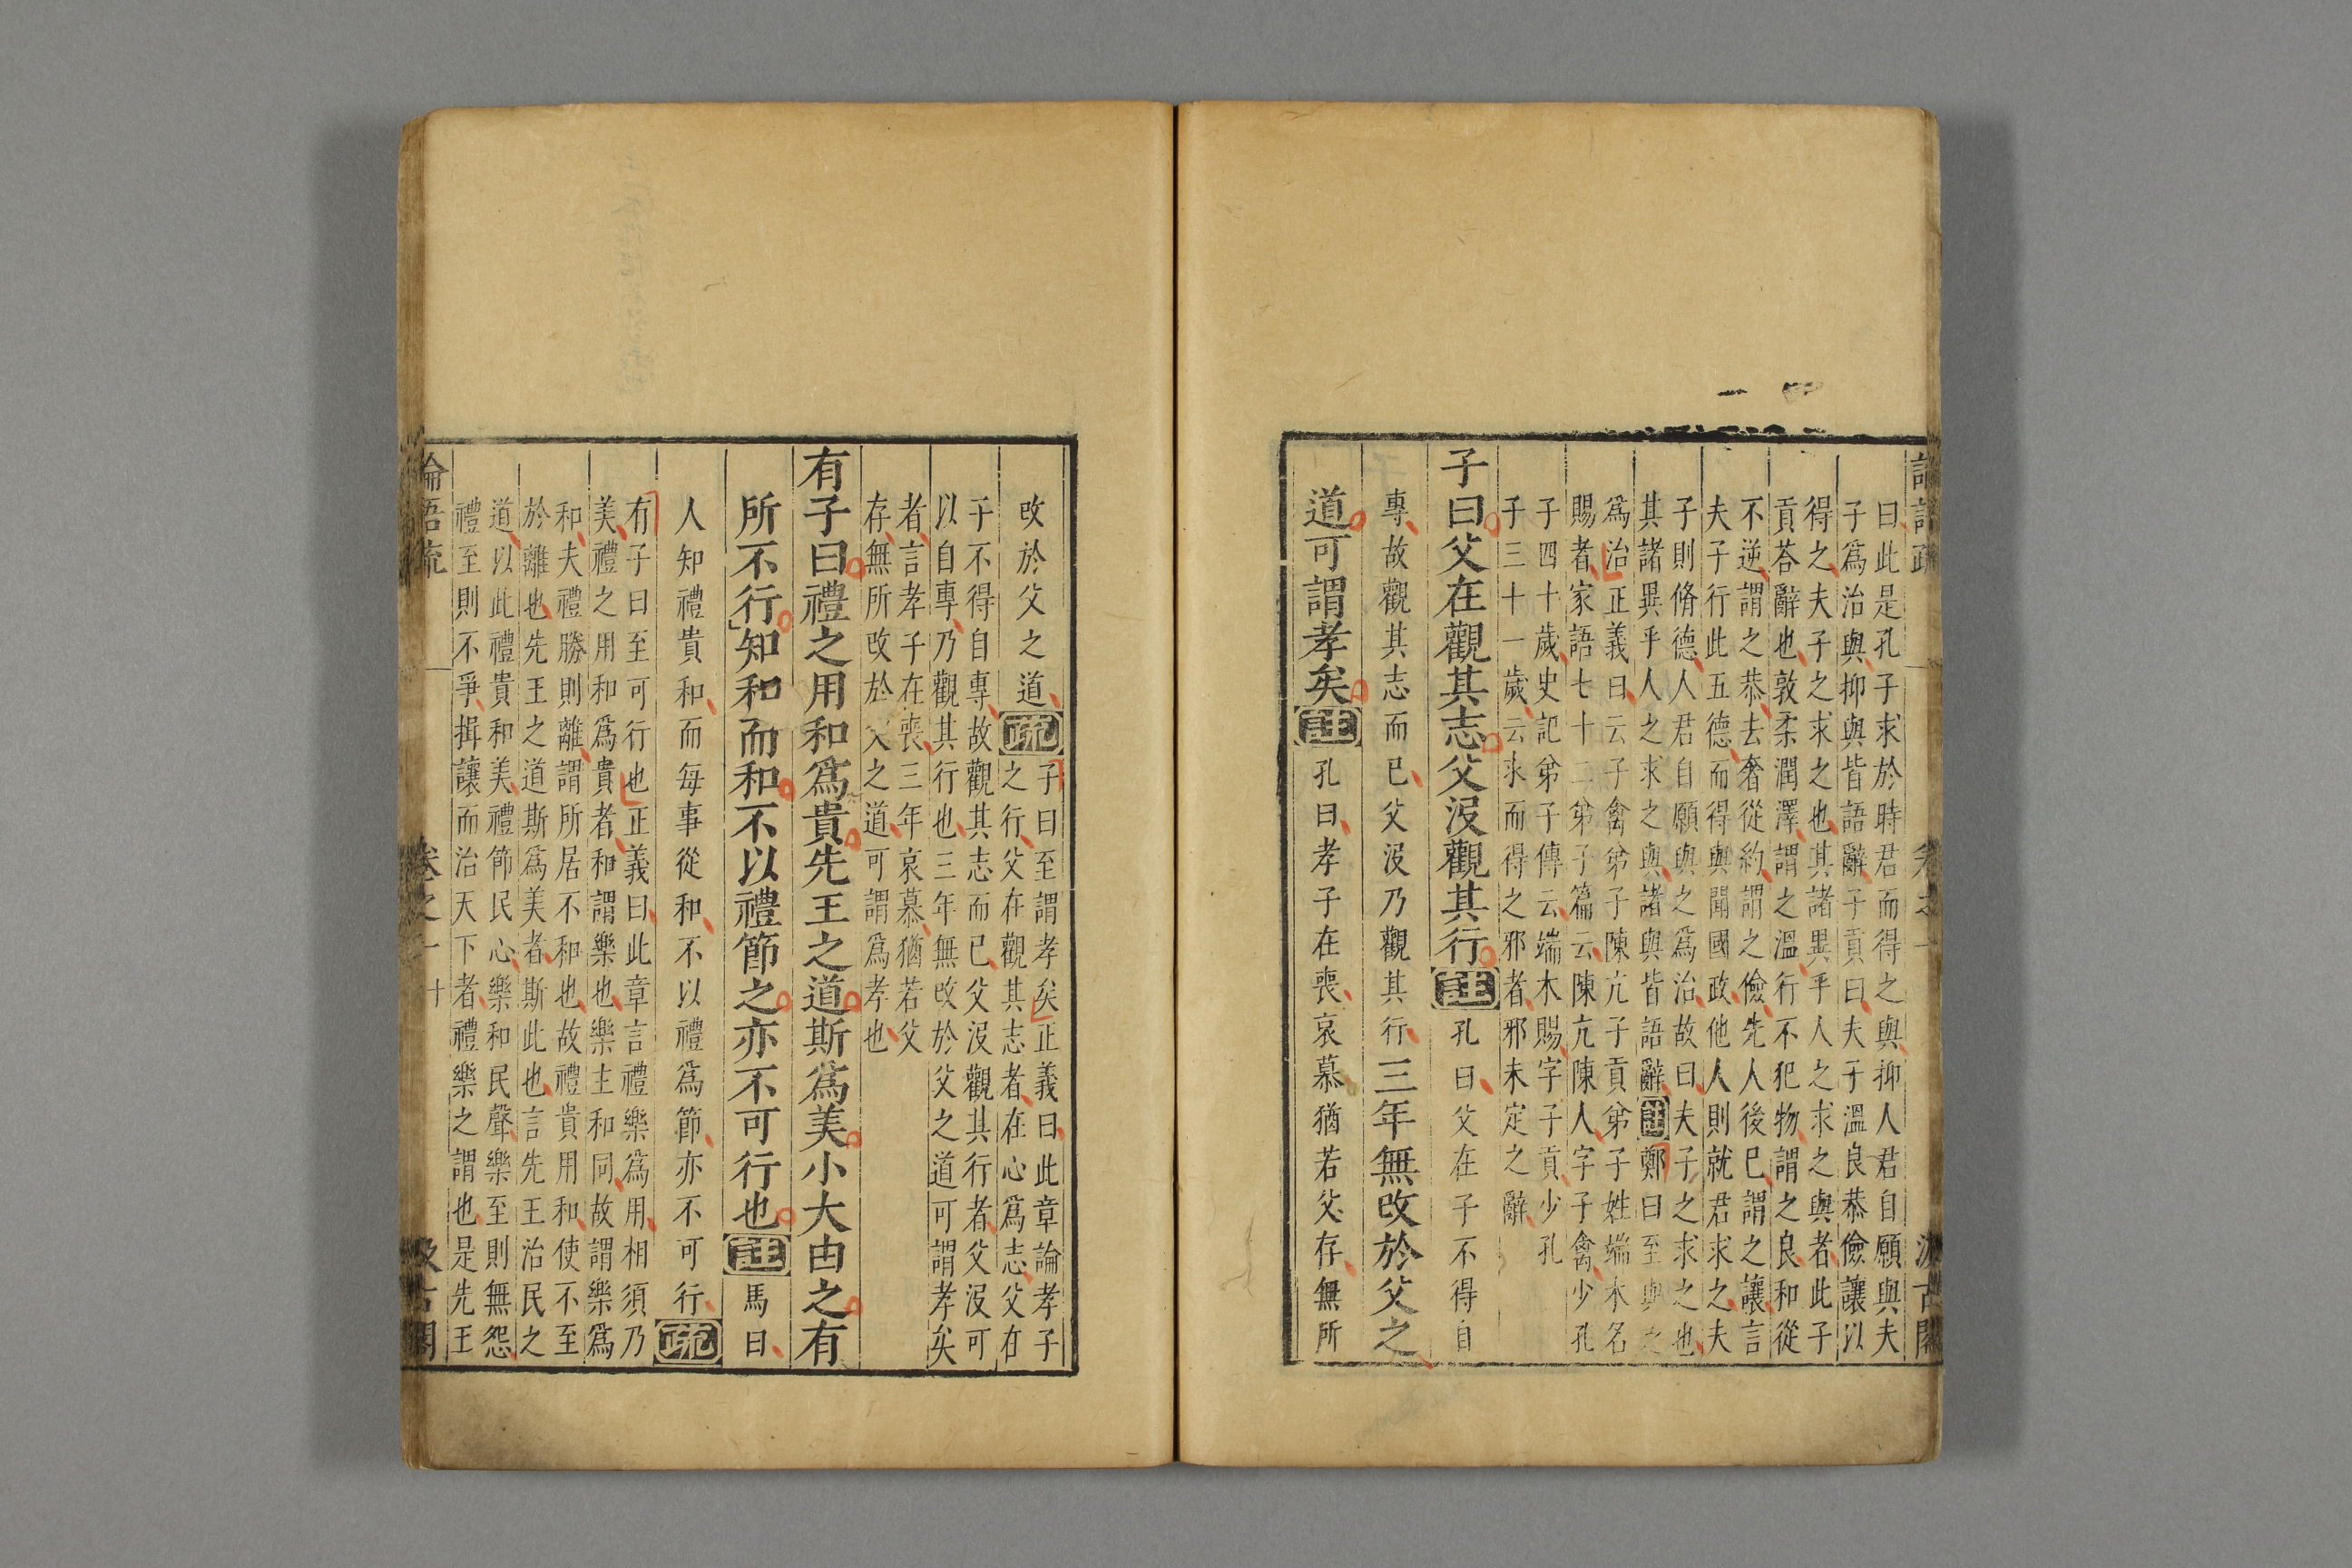 曰此是孔子求於時君而得之與抑人君自願與夫
子爲治與抑與皆語辭子貢曰夫子溫良恭儉讓以
得之夫子之求之也其諸異乎人之求之與者此子
貢荅辭也敦柔潤澤謂之溫行不犯物謂之良和從
不逆謂之恭去奢從約謂之儉先人後已謂之讓言
夫子行此五德而得與聞國政他人則就君求之夫
子則脩德人君自願與之爲治故曰夫子之求之也
其諸異乎人之求之與諸與皆語辭註鄭曰至與之
爲治正義曰云子禽弟子陳亢子貢弟子姓端木名
賜者家語七十二弟子篇云陳亢陳人字子禽少孔
子四十歲史記弟子傳云端木賜字子貢少孔
子三十一歲云求而得之邪者邪未定之辭
子曰父在觀其志父沒觀其行註孔曰父在子不得自
專故觀其志而已父沒乃觀其行三年無改於父之
道可謂孝矣註孔曰孝子在喪哀慕猶若父存無所
改於父之道疏子曰至謂孝矣正義曰此章論孝子
之行父在觀其志者在心爲志父在
子不得自專故觀其志而已父沒觀其行者父沒可
以自專乃觀其行也三年無改於父之道可謂孝矣
者言孝子在喪三年哀慕猶若父
存無所改於父之道可謂爲孝也
有子曰禮之用和爲貴先王之道斯爲美小大由之有
所不行知和而和不以禮節之亦不可行也註馬曰
人知禮貴和而每事從和不以禮爲節亦不可行疏
有子曰至可行也正義曰此章言禮樂爲用相須乃
美禮之用和爲貴者和謂樂也樂主和同故謂樂爲
和夫禮勝則離謂所居不和也故禮貴用和使不至
於離也先王之道斯爲美者斯此也言先王治民之
道以此禮貴和美禮節民心樂和民聲樂至則無怨
禮至則不爭揖讓而治天下者禮樂之謂也是先王
論語疏 卷之一 十 汲古閣